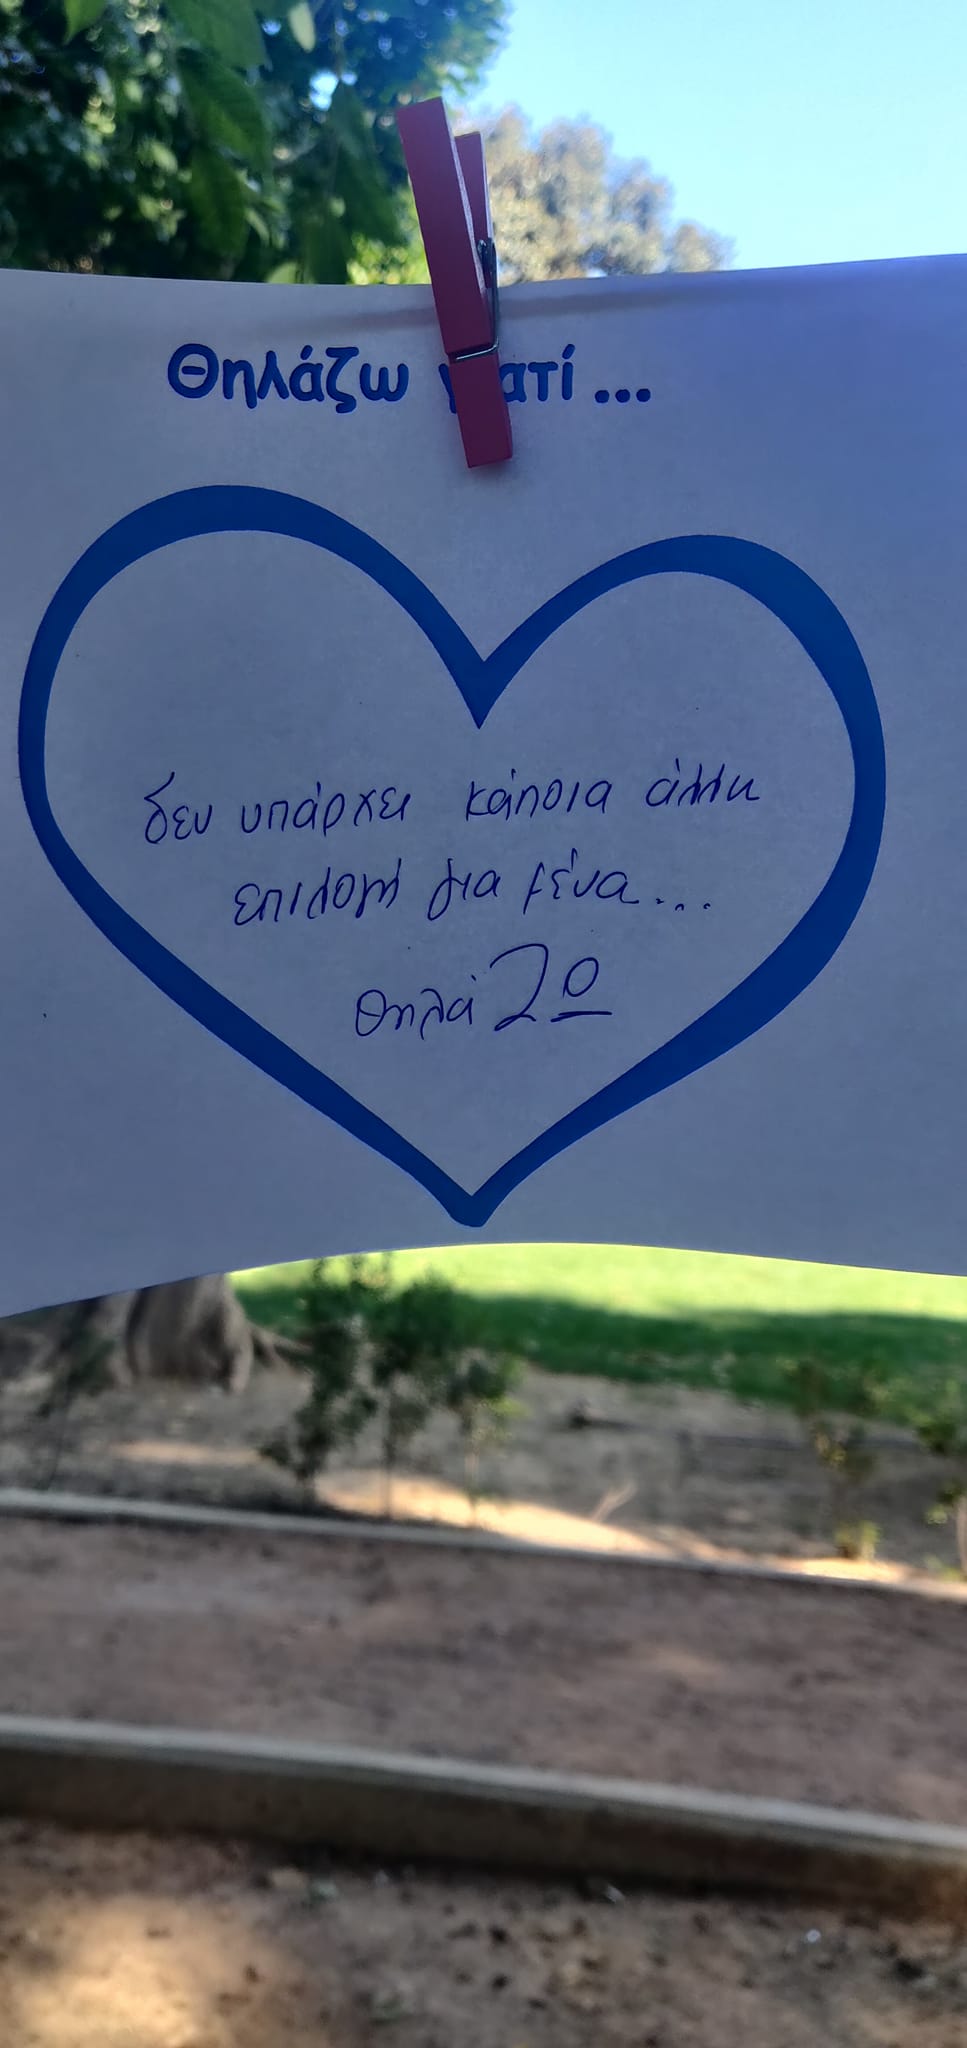 Θηλάζω γιατί ...
δεν υπάρχει κάποια άλλη
επιλογή για μένα...
θηλάζω